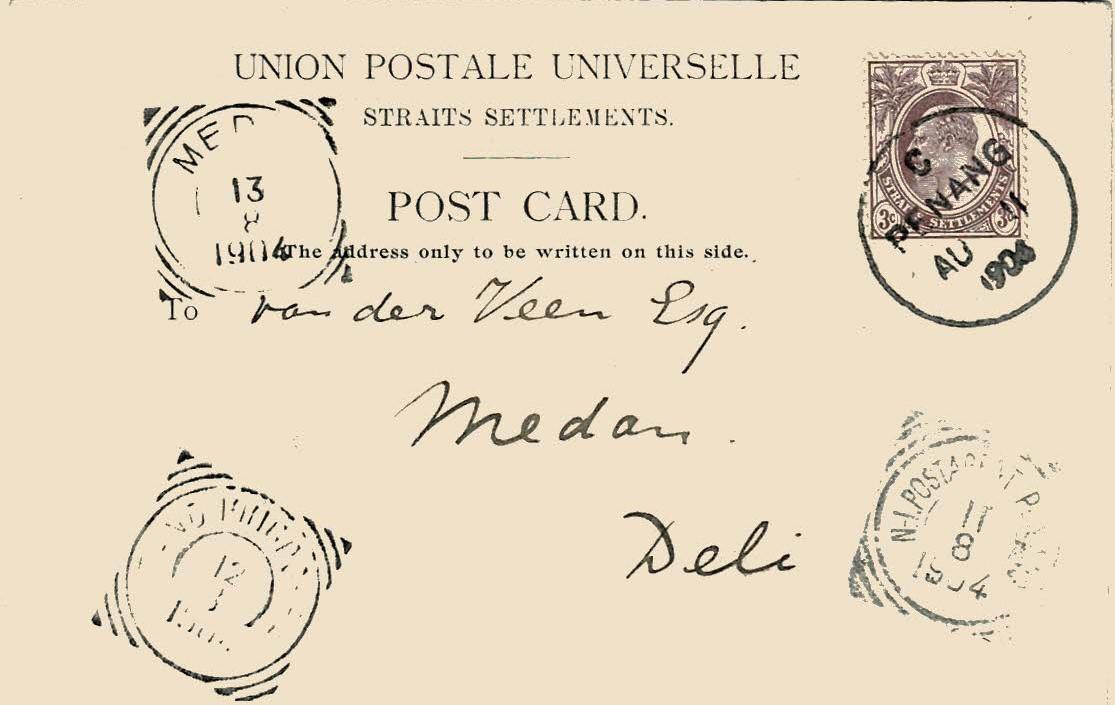 UNION POSTALE UNIVERSELLE
STRAITS SETTLEMENTS.
POST CARD.
The address only to be written on this side.
To van der Veen Esq.
Medan.
Deli
3c STRAITS SETTLEMENTS 3c
C
PENANG
AU 11
1904
MED
13
8
1904
N-I.POSTAGENT
11
8
1904
12